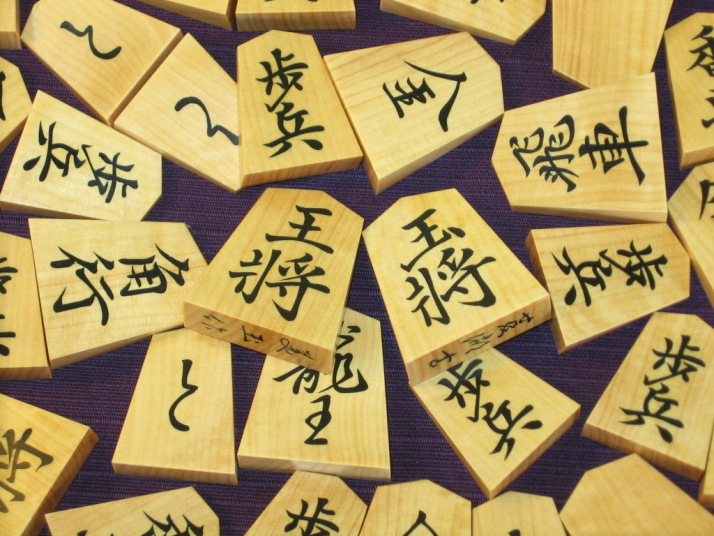 歩兵
金
飛車
歩兵
角行
王将
玉将
歩兵
と
と
と
龍王
歩兵
歩兵
将
歩